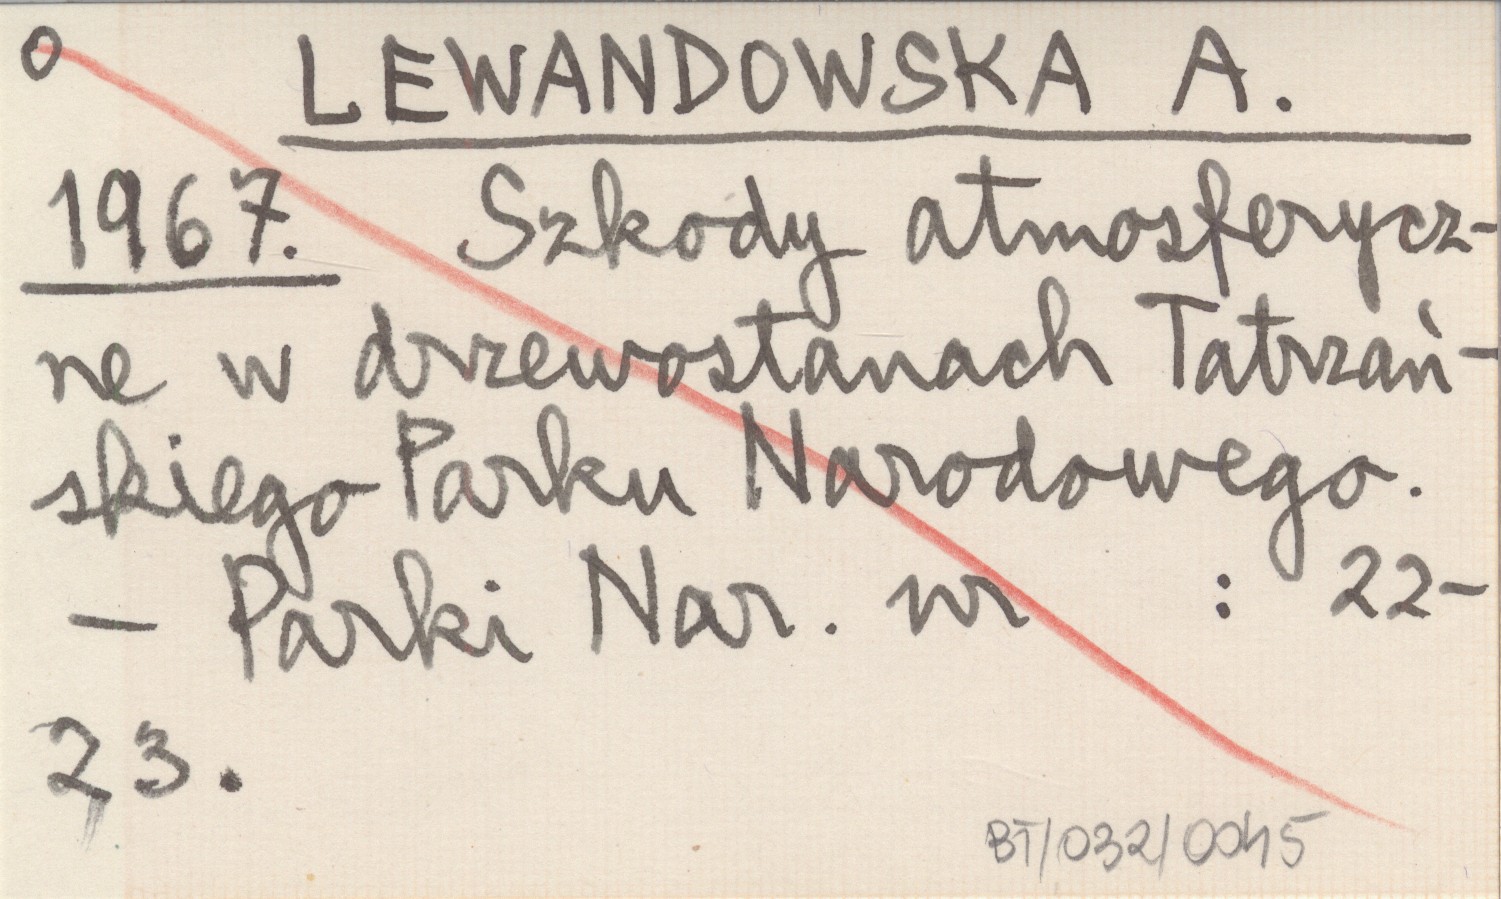 O LEWANDOWSKA A.
1967. Szkody atmosferycz-
ne w drzewostanach Tatrzań-
skiego Parku Narodowego.
- Parki Nar. nr : 22-
23.
BT/032/0045